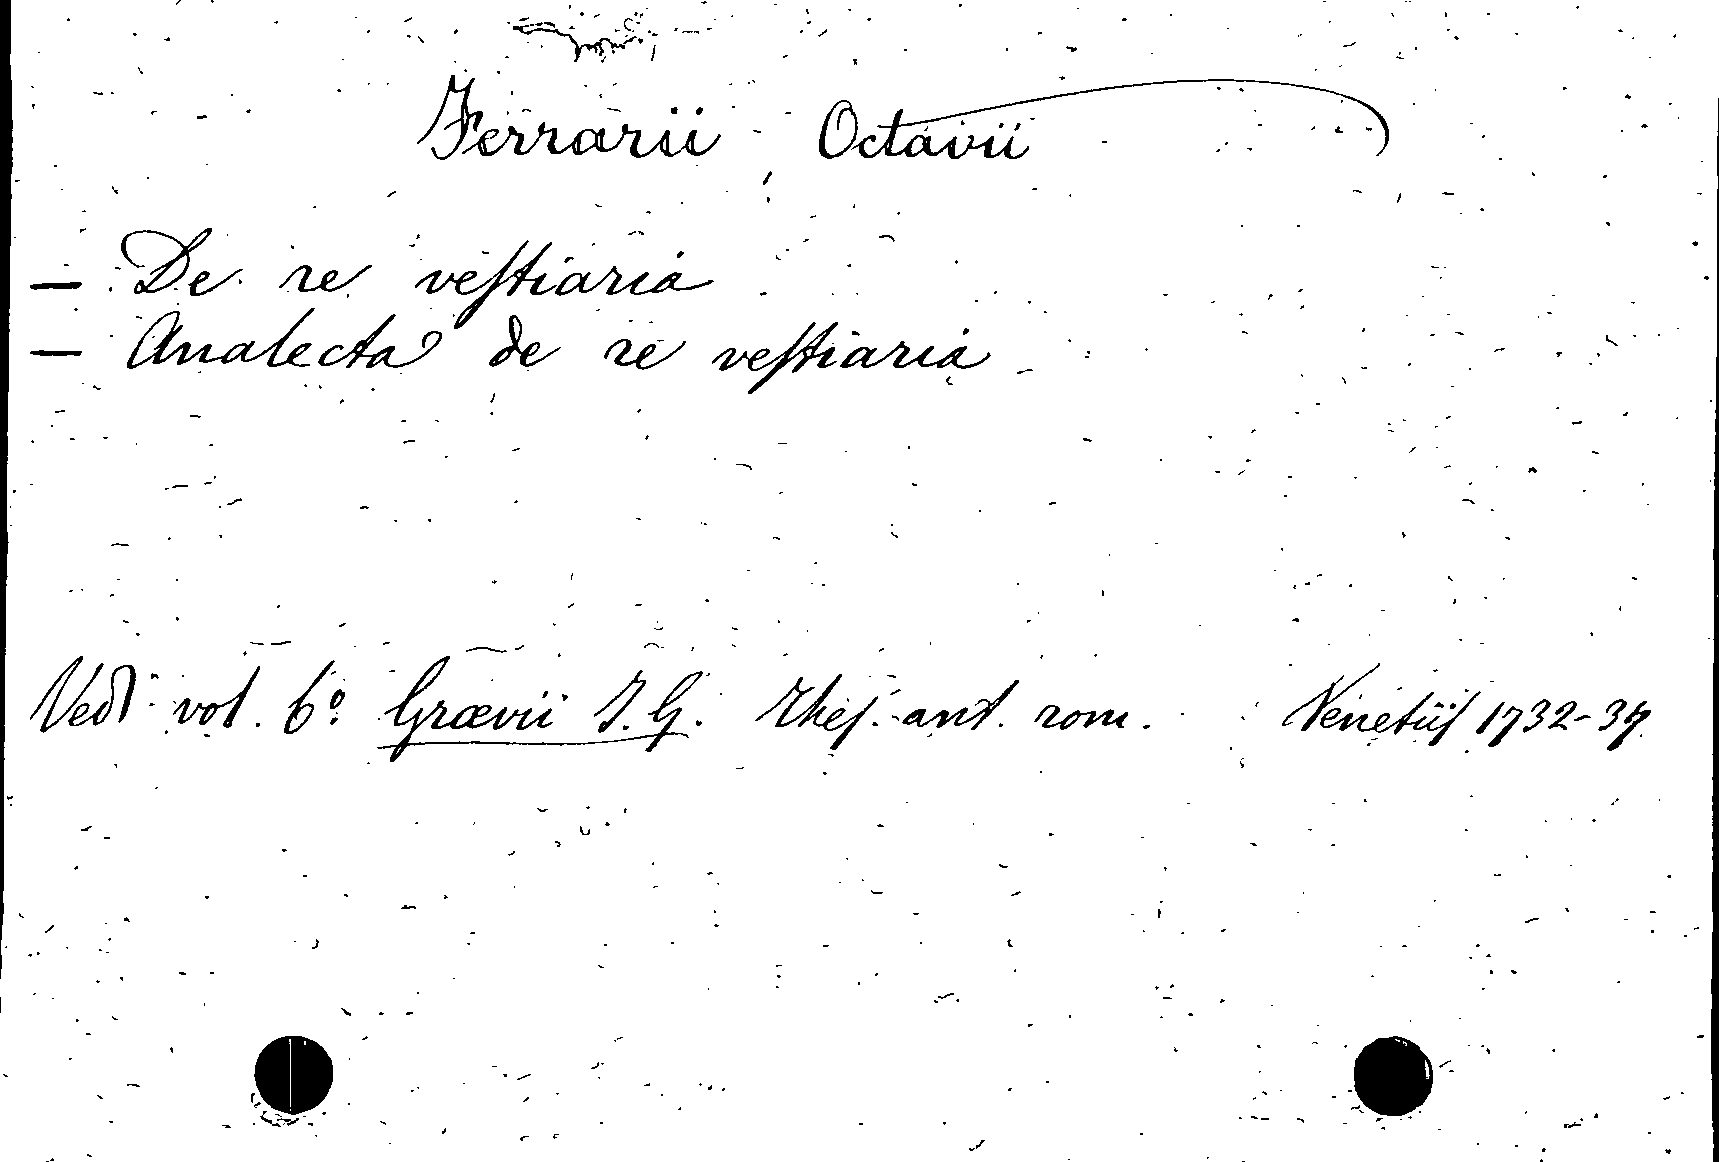 Ferrarii Octavii
— De re veſtiaria
— Analecta de re veſtiaria
Vedi vol. 6º Grævii I. G. Theſ. ant. rom. Venetiiſ 1732-37